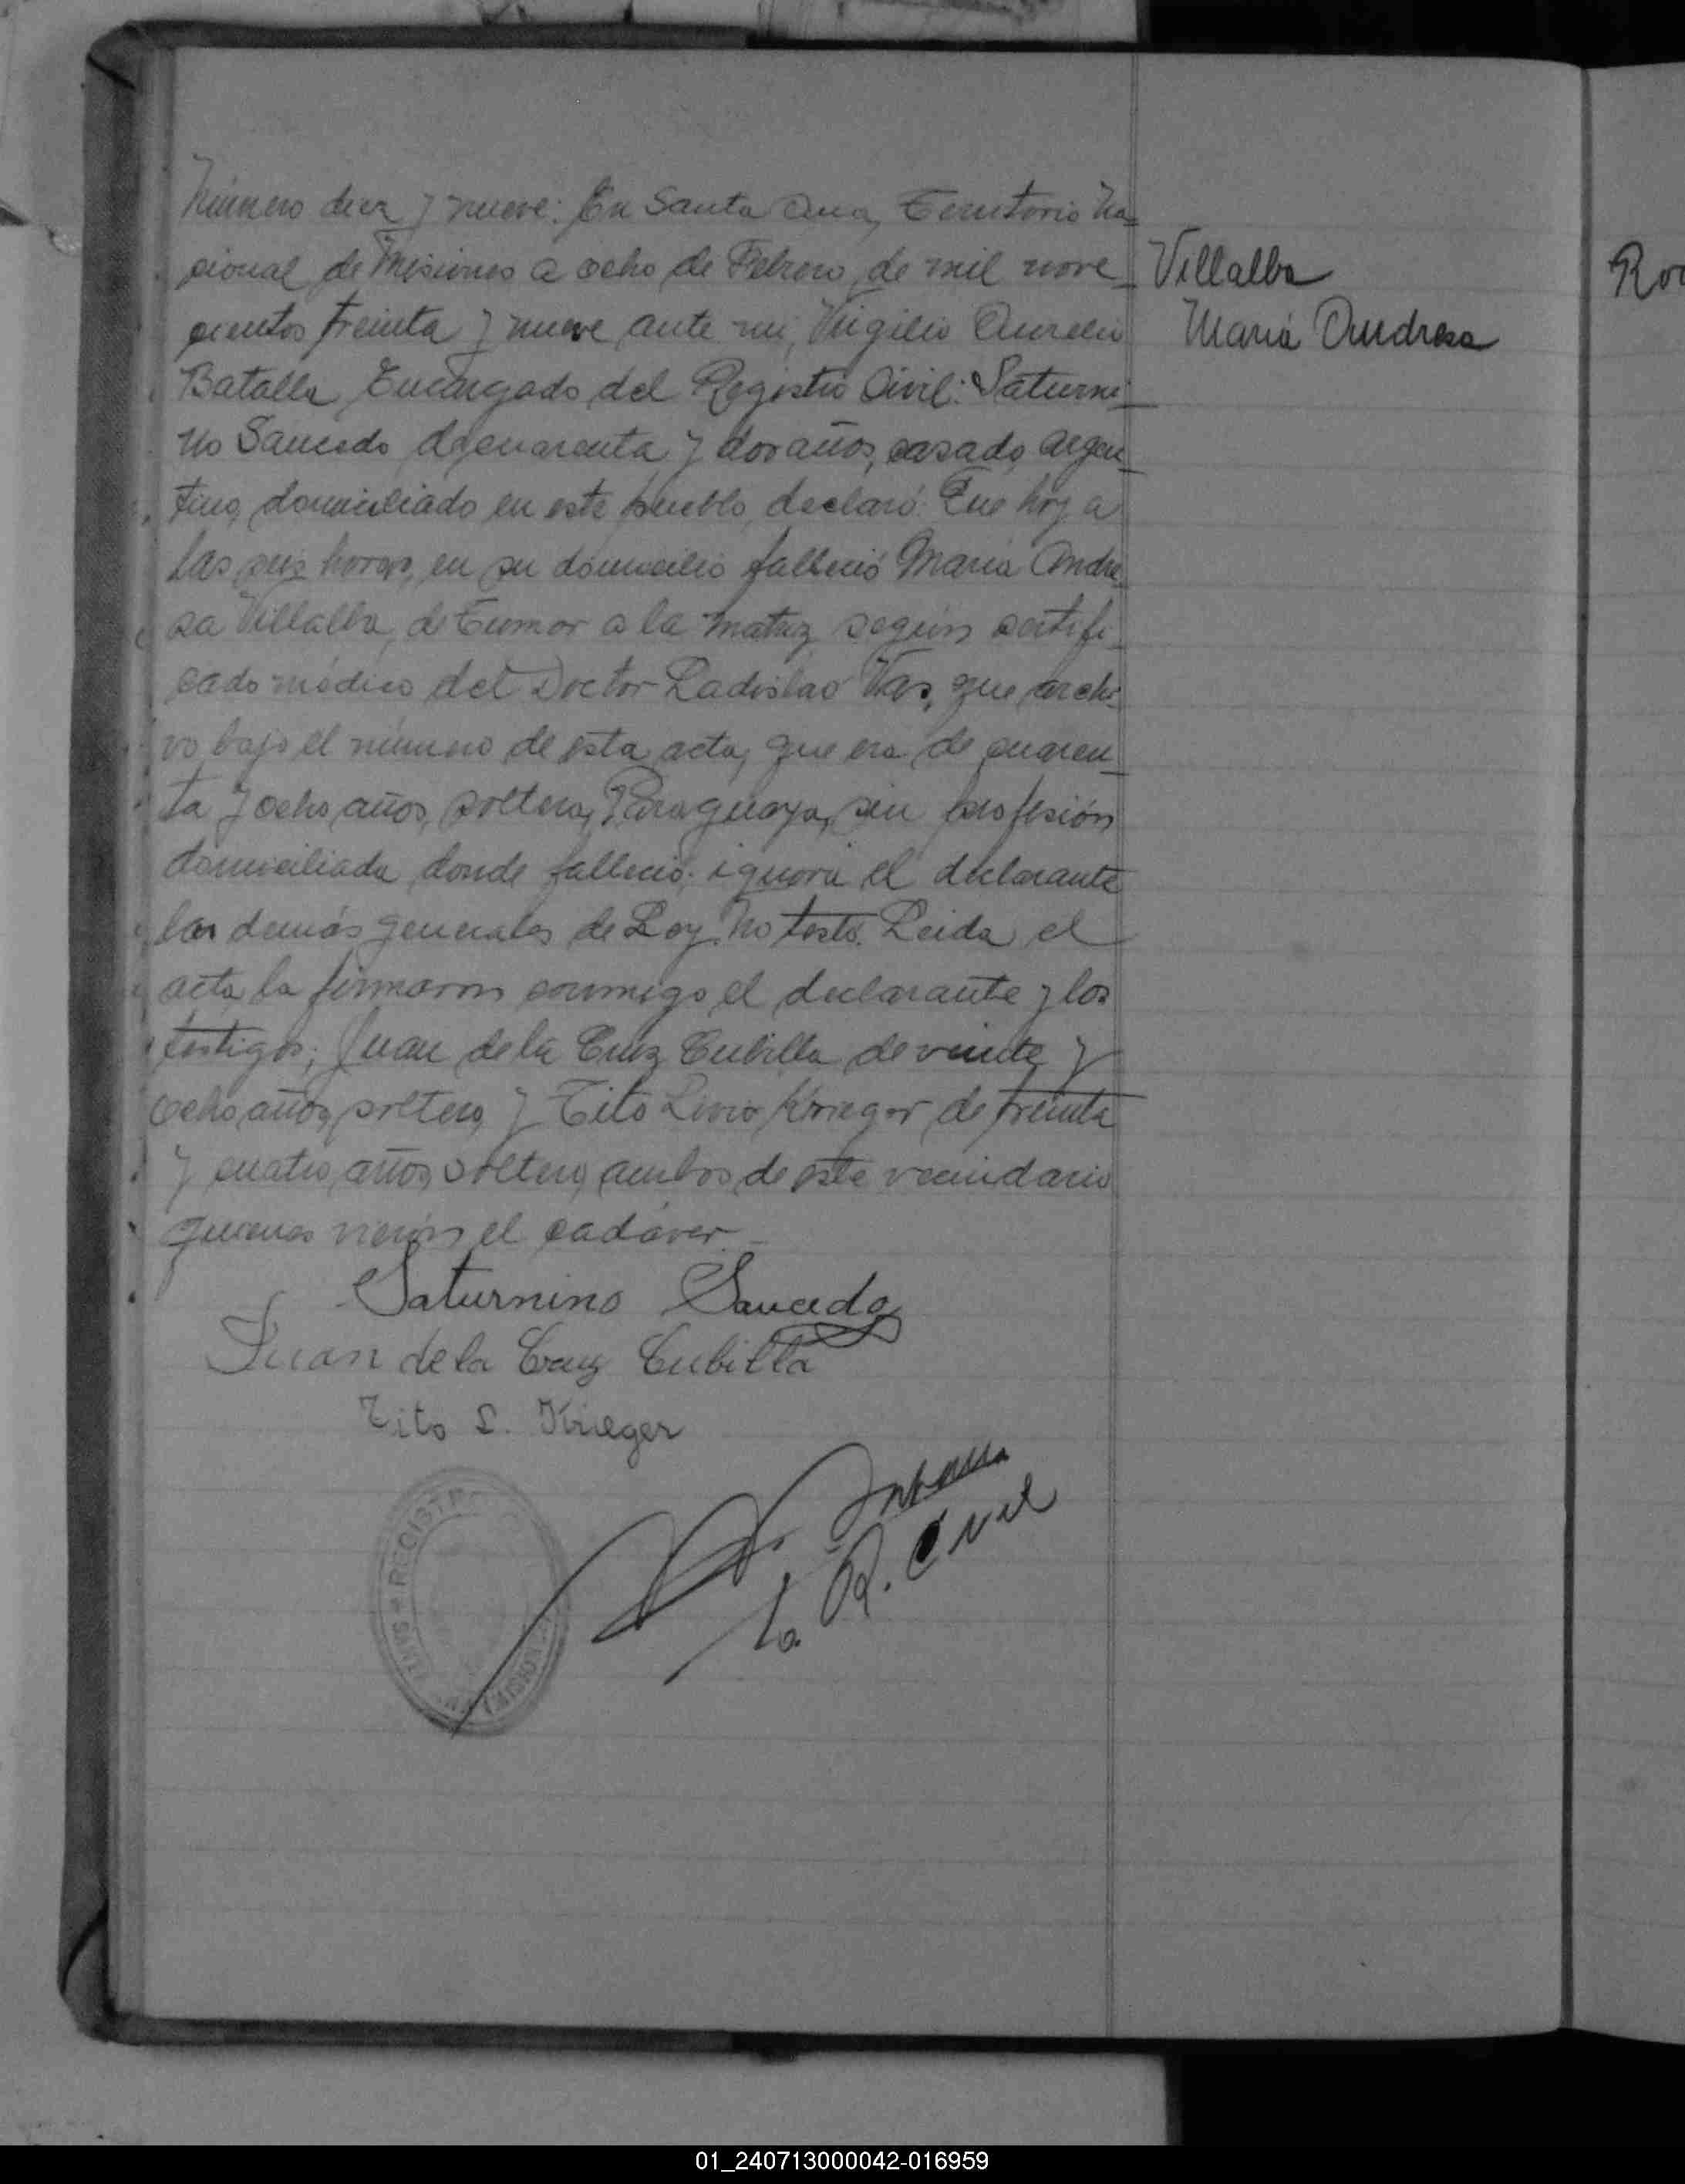 Número diez y nueve: En Santa Ana, Territorio Na-
cional de Misiones a ocho de Febrero de mil nove-
cientos treinta y nueve ante mi, Virgilio Aurelio
Batalla, Encargado del Registro Civil: Saturni-
no Saucedo de cuarenta y dos años, casado, argen-
tino, domiciliado en este pueblo, declaró: Que hoy a
las seis horas, en su domicilio falleció María Andre-
sa Villalba, de Tumor a la matriz según certifi-
cado médico del Doctor Ladislao Vas, que archi-
vo bajo el número de esta acta, que era de cuaren-
ta y ocho años, soltera, Paraguaya, sin profesión
domiciliada donde falleció: ignora el declarante
las demás generales de Ley. No testó. Leida el
acta la firmaron conmigo el declarante y los
testigos; Juan de la Cruz Cubilla de veinte y
ocho años, soltero, y Tito Livio Krieger de treinta
y cuatro años, soltero, ambos de este vecindario
quienes vieron el cadáver.-
Villalba
María Andresa
Saturnino Saucedo
Juan de la Cruz Cubilla
Tito L. Krieger
R. Civil
REGISTRO
SANTA ANA (MISIONES)
Ro
01_240713000042-016959